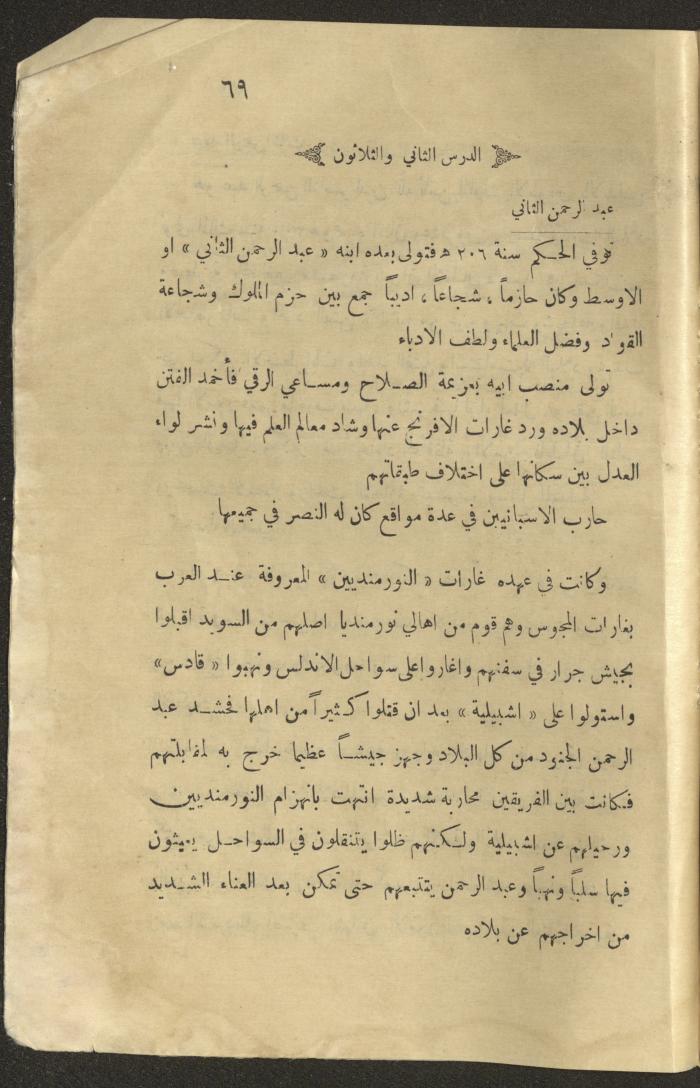 ٦٩
الدرس الثاني والثلاثون
عبد الرحمن الثاني
توفي الحكم سنة ٢٠٦ ه فتولى بعده ابنه « عبد الرحمن الثاني » او
الاوسط وكان حازماً ، شجاعاً ، اديباً جمع بين حزم الملوك وشجاعة
القواد وفضل العلماء ولطف الادباء
تولى منصب ابيه بعزيمة الصلاح ومساعي الرقي فأخمد الفتن
داخل بلاده ورد غارات الافرنج عنها وشاد معالم العلم فيها ونشر لواء
العدل بين سكانها على اختلاف طبقاتهم
حارب الاسبانيين في عدة مواقع كان له النصر في جميعها
وكانت في عهده غارات « النورمنديين » المعروفة عند العرب
بغارات المجوس وهم قوم من اهالي نورمنديا اصلهم من السويد اقبلوا
بجيش جرار في سفنهم واغاروا على سواحل الاندلس ونهبوا « قادس»
واستولوا على « اشبيلية » بعد ان قتلوا كثيراً من اهلها فحشد عبد
الرحمن الجنود من كل البلاد وجهز جيشاً عظيما خرج به لمقابلتهم
فكانت بين الفريقين محاربة شديدة انتهت بانهزام النورمنديين
ورحيلهم عن اشبيلية ولكنهم ظلوا يتنقلون في السواحل يعيثون
فيها سلباً ونهباً وعبد الرحمن يقتبعهم حتى تمكن بعد العناء الشديد
من اخراجهم عن بلاده